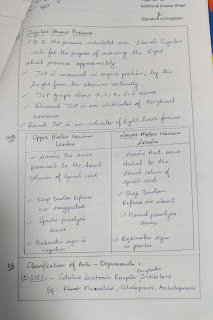 Additional Answer Sheet
Signature of Invigilator
Jugular Venous Pressure:
It is the pressure calculated over Internal Jugular
vein for the purpose of assessing the Right
atrial pressure approximately
JVP is measured in supine position, by the
height from the sternum vertically
JVP graph shows a, c, x, v, y waves
JVP is an indicator of Peripheral
Raised JVP is an indicator of Right Heart failure.
Upper Motor Neuron Lesion
Lower Motor Neuron Lesion
Lesions that occur
proximal to the
column of Spinal cord
Lesions that occur
distal to the
column of
spinal cord
Deep tendon Reflexes
are exaggerated
Deep Tendon
Reflexes are absent
Spastic paralysis
occurs
Flaccid paralysis
occurs
Babinski sign is
Babinski sign
is
Classification of Anti-Depressants:
(SSRI) - Selective Serotonin Reuptake Inhibitors
Eg: Fluoxetine, Citalopram, Escitalopram